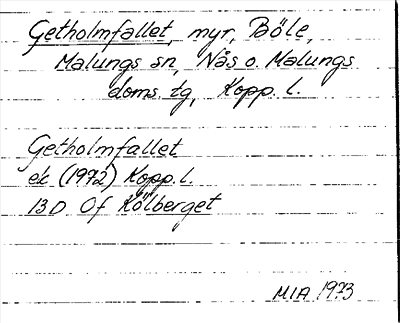 Getholmfallet, myr, Böle,
Malungs sn, Nås o. Malungs
doms. tg, Kopp. l.
Getholmfallet
ek (1972) Kopp. l.
13D 0f Kölberget
MIA 1973